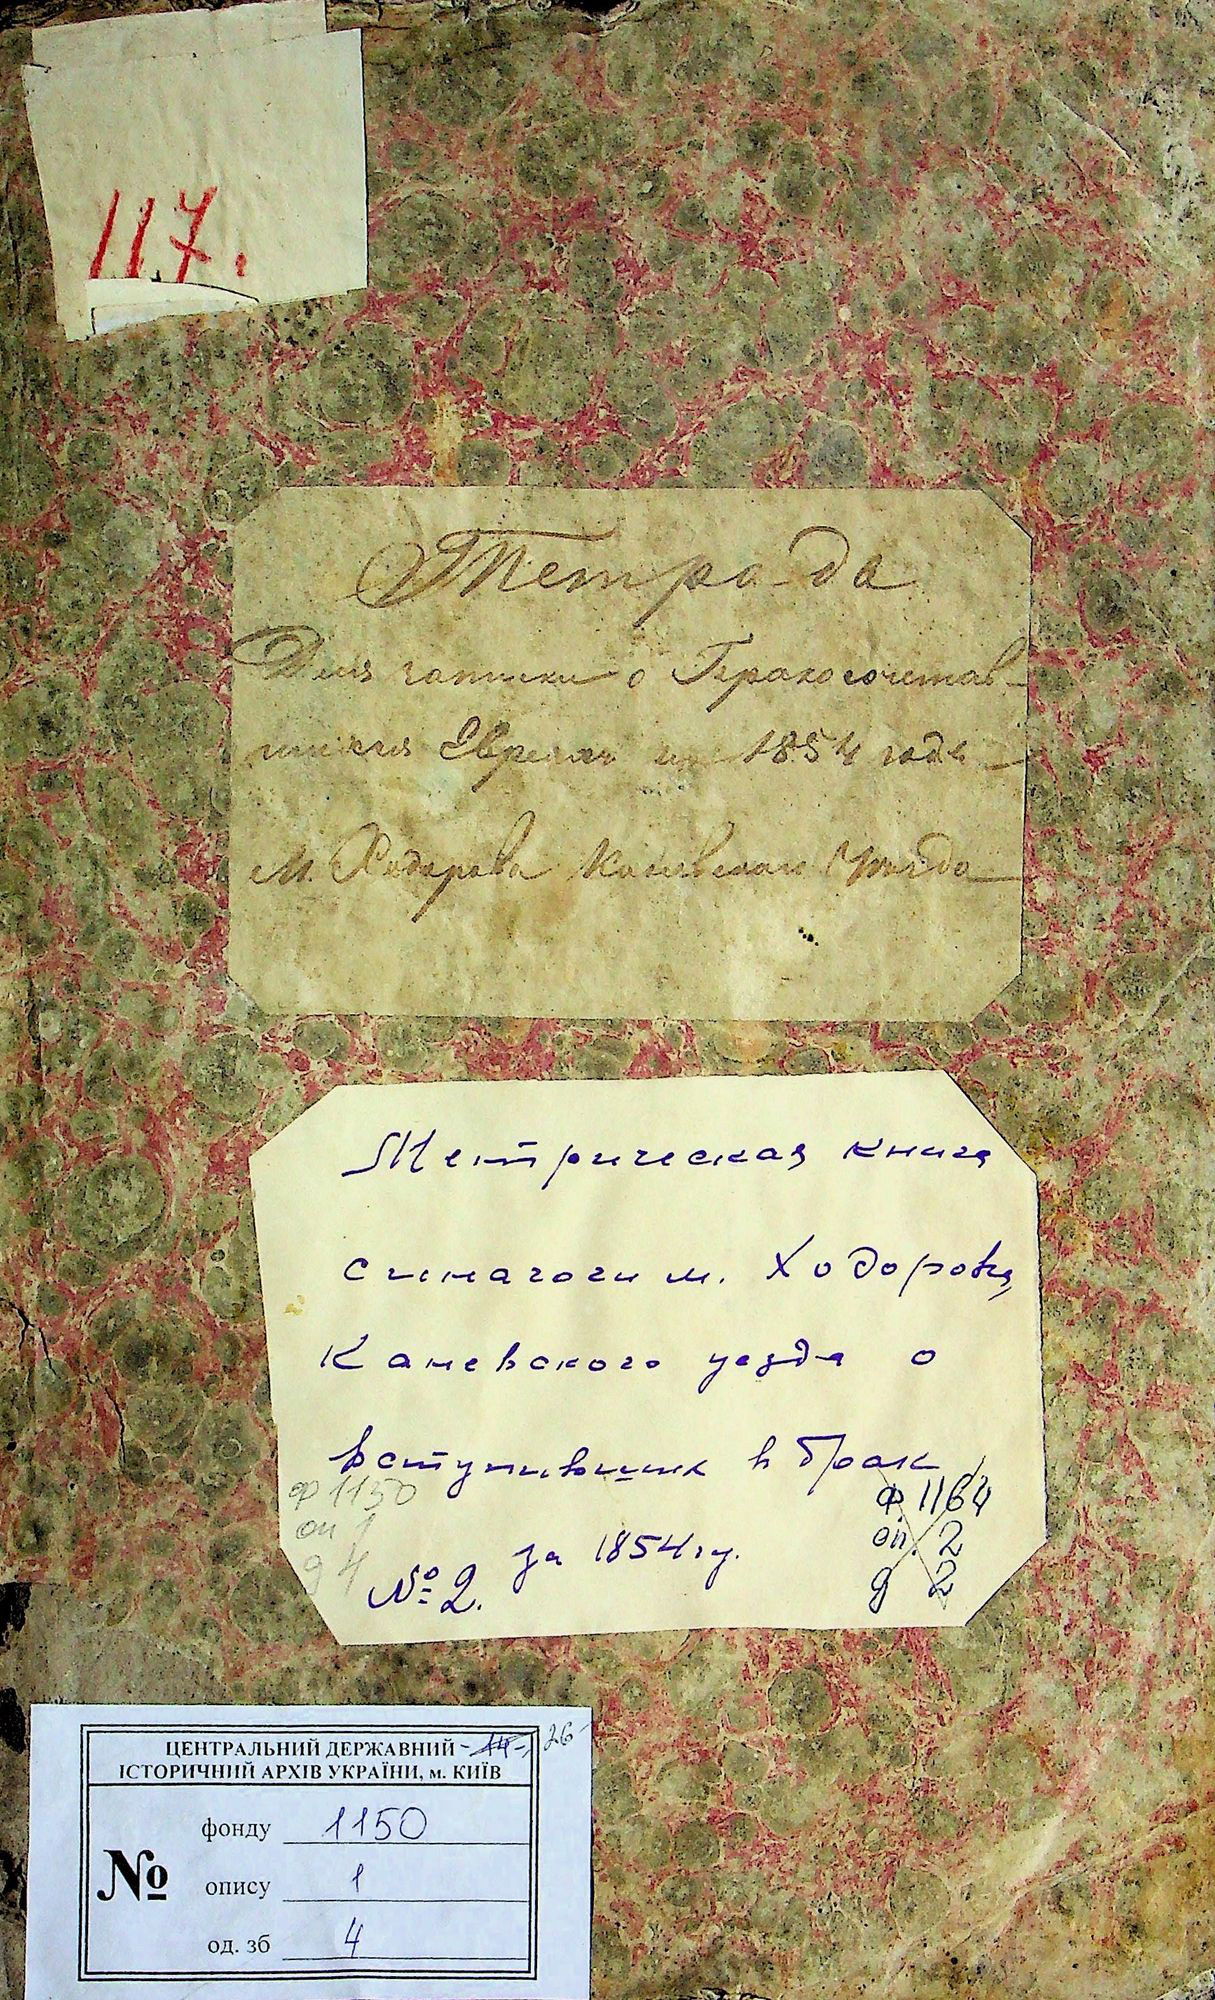 117.
Тетрадь
Для записки о Бракосочетав-
шихся Евреяхъ на 1854 годъ
М. Ходорова Каневскаго Уезда
Метрическая книга
синагоги м. Ходорова,
Каневского уезда о
вступивших в брак
за 1854 гг.
№ 2.
ф 1150
оп 1
д 4
ф 1164
оп. 2
д 2
26
ЦЕНТРАЛЬНИЙ ДЕРЖАВНИЙ
ІСТОРИЧНИЙ АРХІВ УКРАЇНИ, м. КИЇВ
№
фонду 1150
опису 1
од. зб 4